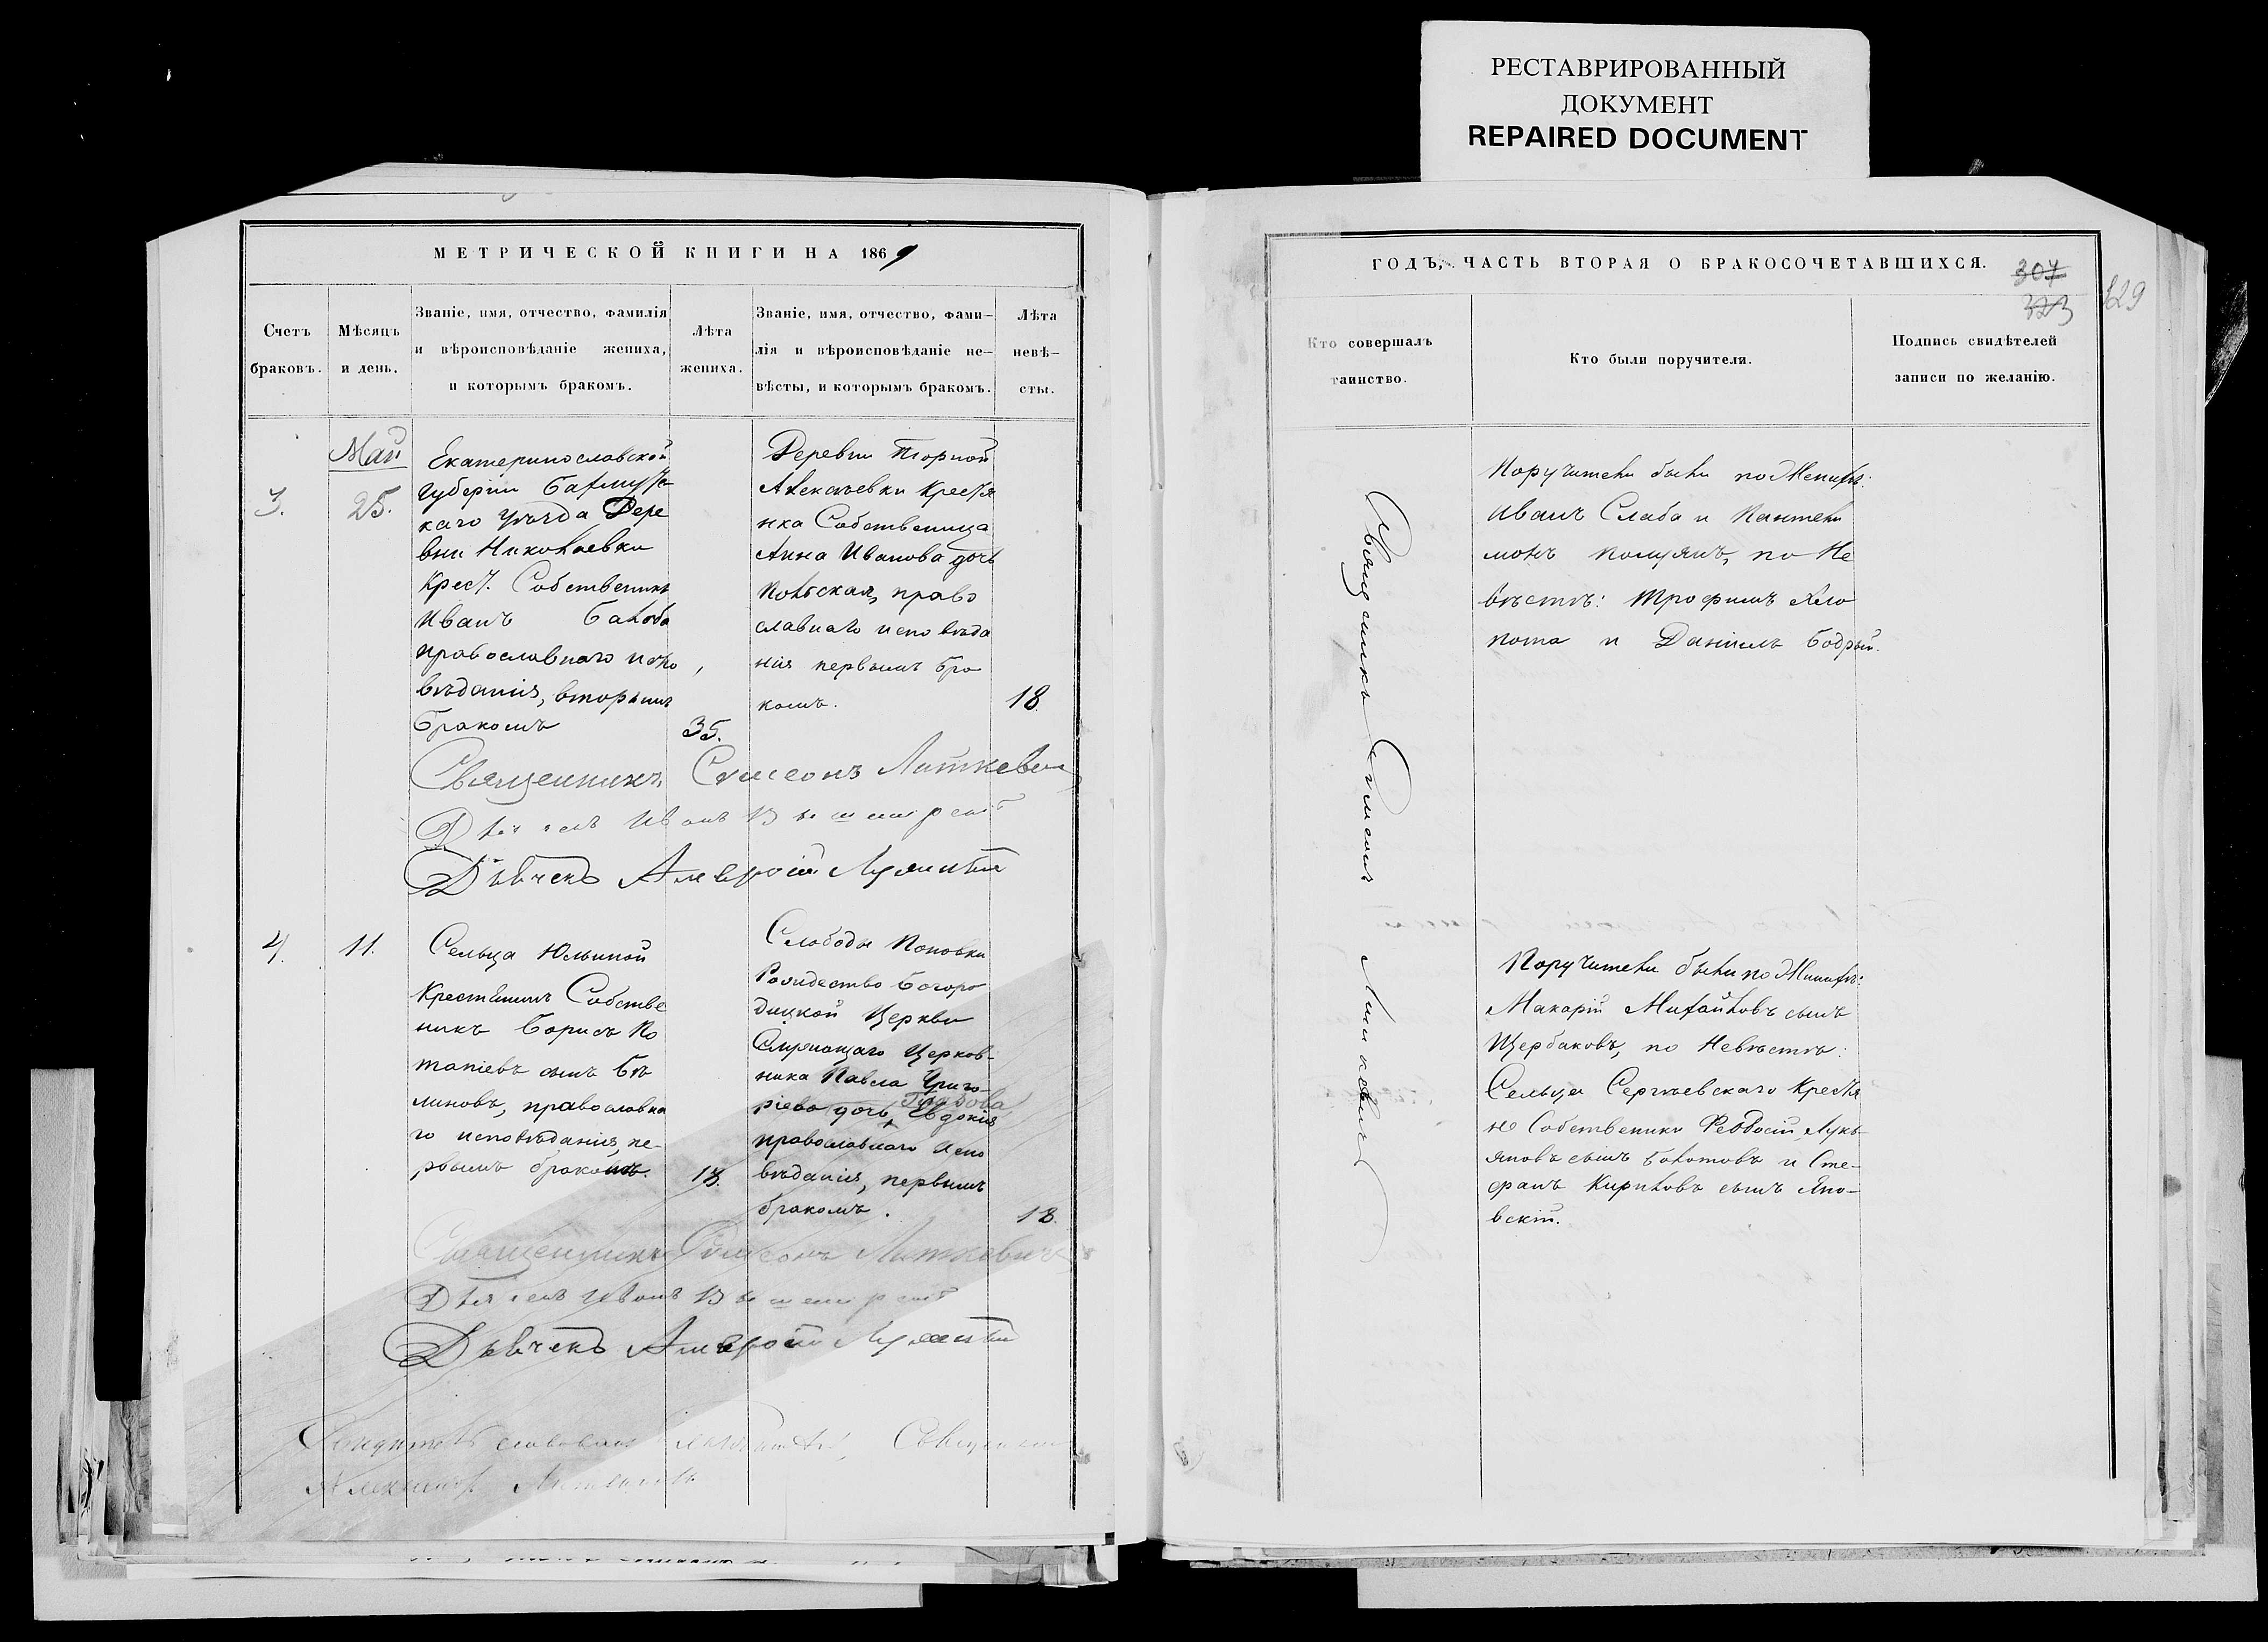 РЕСТАВРИРОВАННЫЙ
ДОКУМЕНТ
REPAIRED DOCUMENT
МЕТРИЧЕСКОЙ КНИГИ НА 1869
Счетъ
браковъ.
Мѣсяцъ
и день.
Званіе, имя, отчество, фамилія
и вѣроисповѣданіе жениха,
и которымъ бракомъ.
Лѣта
жениха.
Званіе, имя, отчество, фами-
лія и вѣроисповѣданіе не-
вѣсты, и которымъ бракомъ.
Лѣта
невѣ-
сты.
3.
Май
25.
Екатеринославской
губерніи Бахмутс
каго уѣзда Дере
вни Николаевки
Крест. Собственникъ
Иванъ
православнаго испо
вѣданія, вторымъ
бракомъ
35.
Деревни
Алексѣевки Крестья
нка Собственница
Анна Иванова дочь
Польская, право
славнаго исповѣда
нія первымъ бра
комъ.
18.
Священникъ Симеонъ Литкевич
Иванъ
Амвросій
4.
11.
Сельца Юльиной
Крестьянинъ Собстве
никъ Борисъ По
тапіевъ сынъ Бѣ
линовъ, православна
го исповѣданія, пе-
рвымъ бракомъ.
18.
Слободы Поповки
Рождество Богоро
дицкой Церкви
Служащаго Церков-
ника Павла Григо-
ріева дочь Евдокія
православнаго испо
вѣданія, первымъ
бракомъ.
18.
Священникъ Симеонъ Литкевичъ
Иванъ
Амвросій
ГОДЪ, ЧАСТЬ ВТОРАЯ О БРАКОСОЧЕТАВШИХСЯ.
307
323
329
Кто совершалъ
таинство.
Кто были поручители.
Подпись свидѣтелей
записи по желанію.
Священникъ Симеонъ Литкевичъ
Поручители были по Женихѣ:
Иванъ Слаба и Пантели
монъ, по Не
вѣстѣ: Трофимъ
и Даніилъ Бодрый.
Поручители были по Женихѣ:
Макарій Михайловъ сынъ
Щербаковъ, по Невѣстѣ:
Сельца Сергѣевскаго Крестья
не Собственики Феодосій Лукь
яновъ сынъ Болотовъ и Сте-
фанъ Кириловъ сынъ Яно-
вскій.